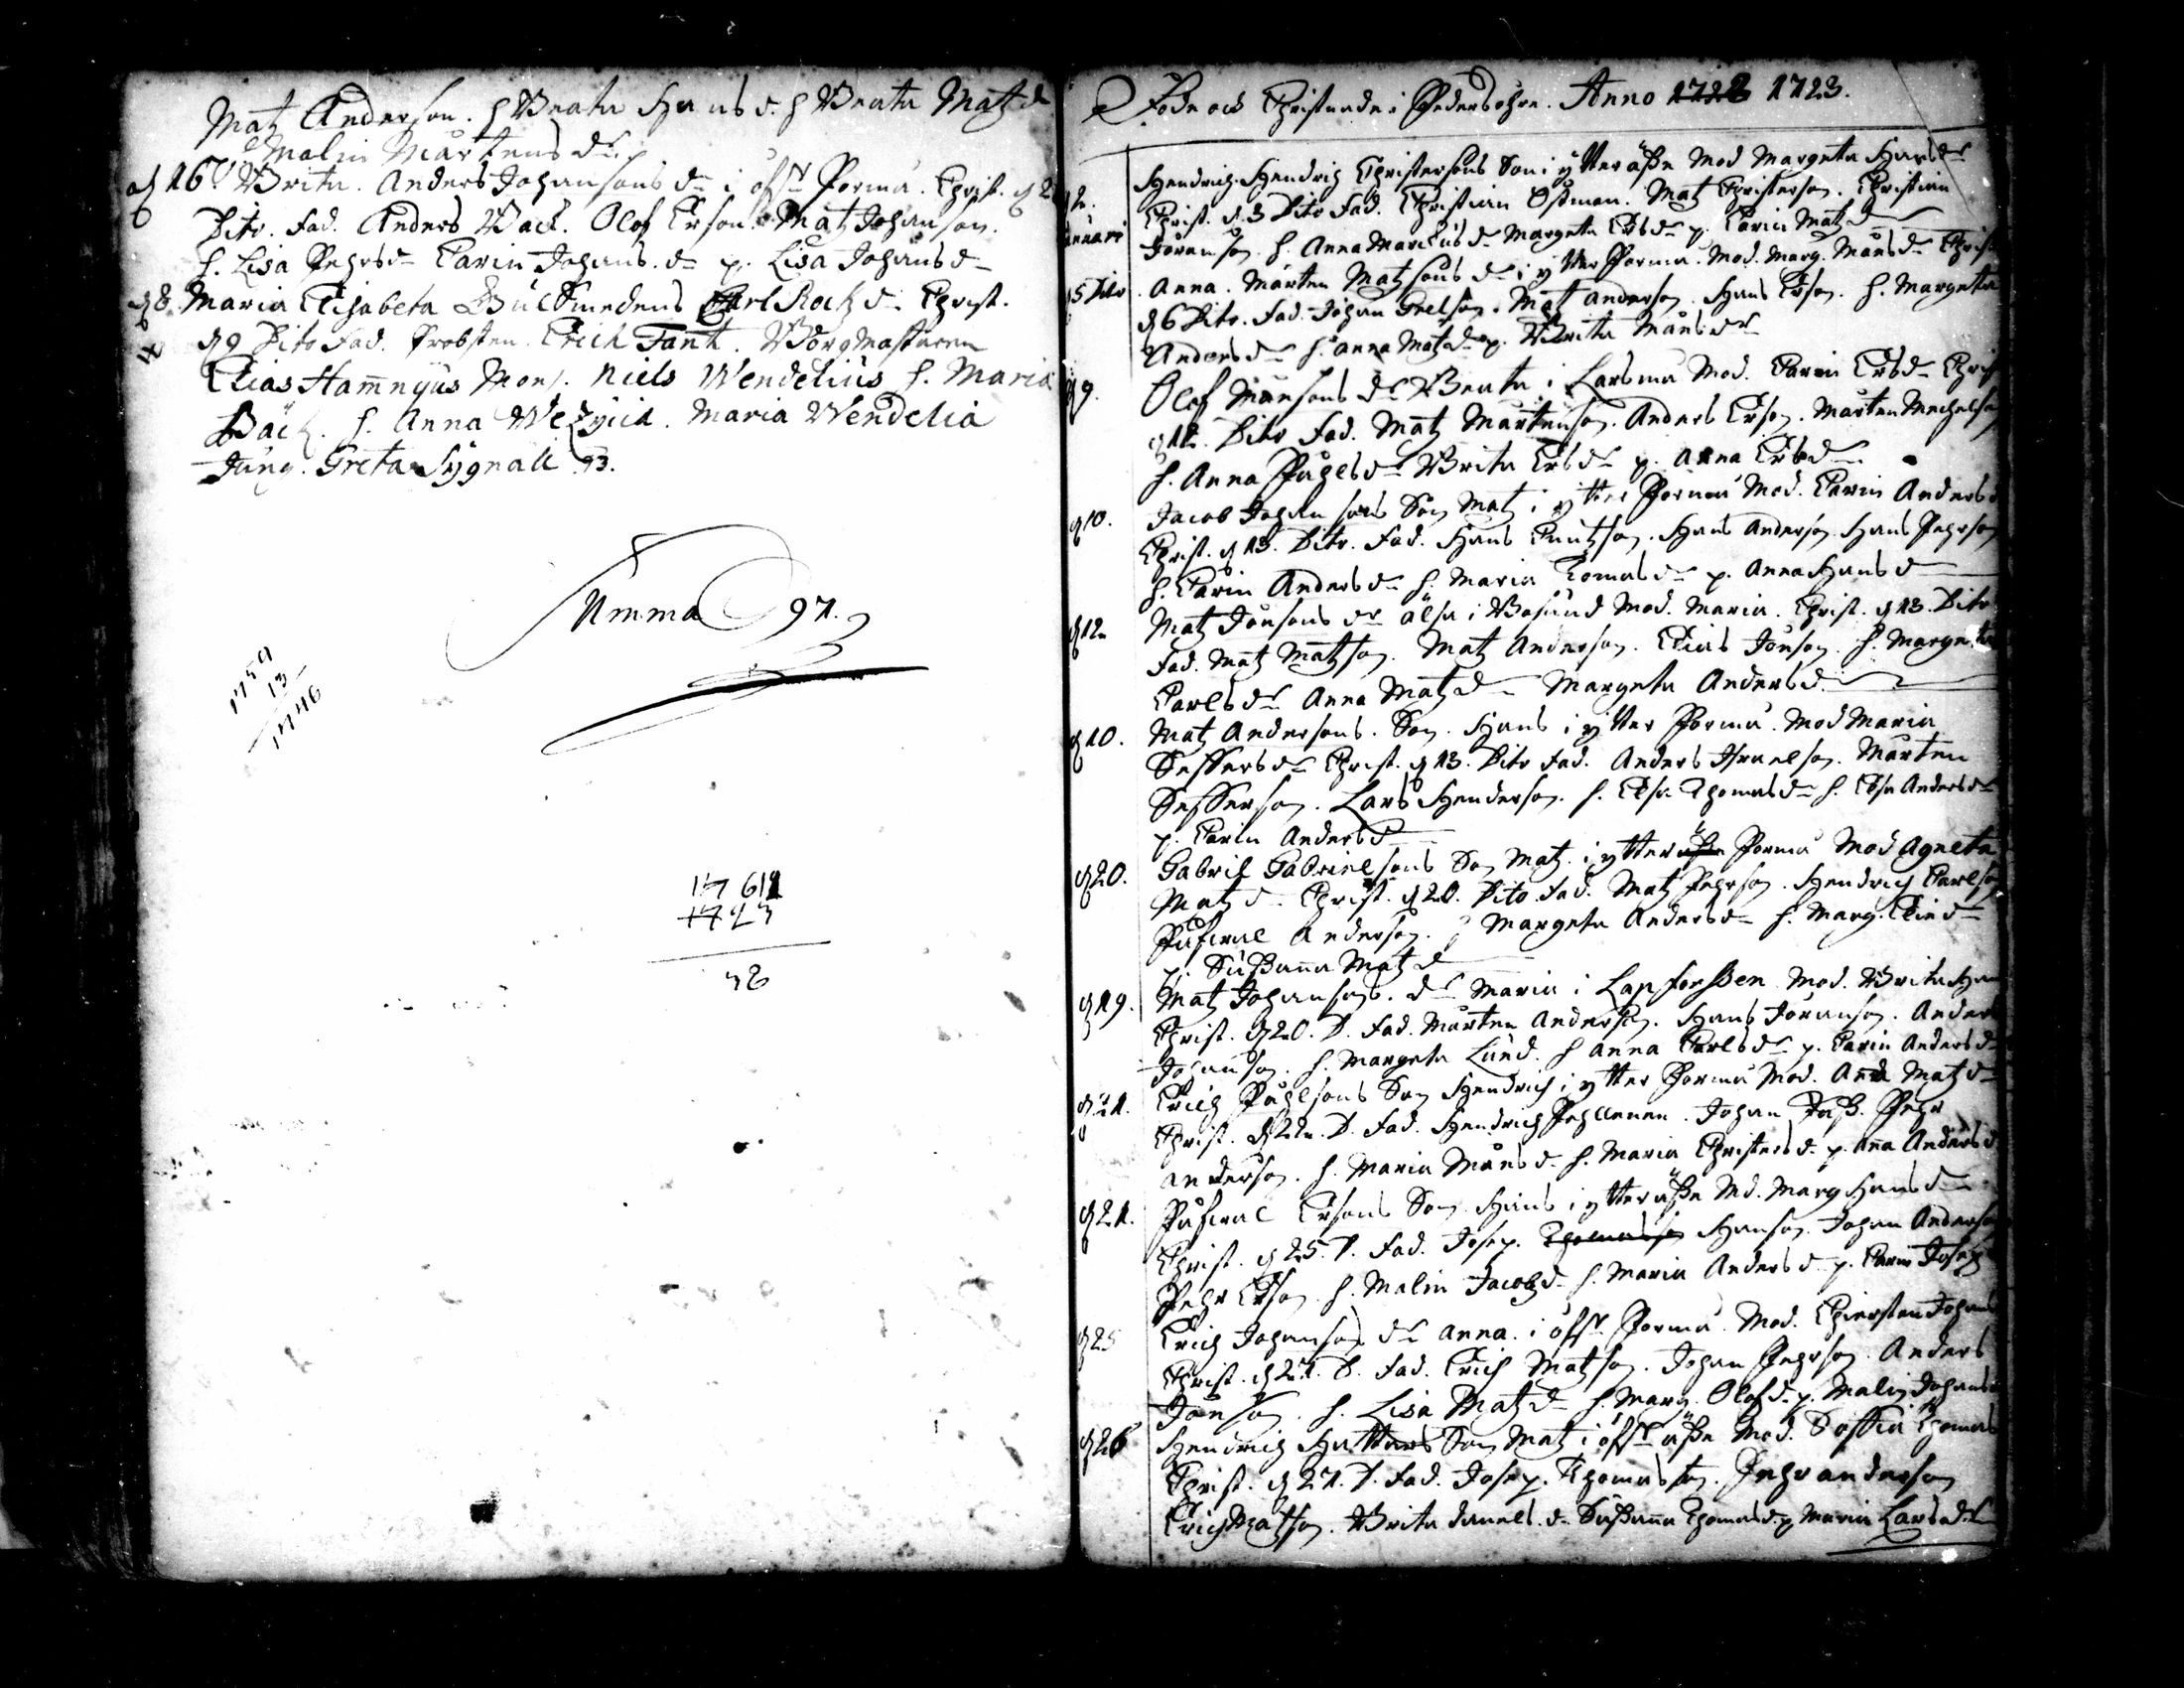 Matz Anderson. h Beata Hans d. h Beata Matz d
Malin Mårtens dr.
d 16. Brita. Anders Johansons dr i öfr Forma. Christ. d 2
Dito. Fad. Anders Back. Olof Erson. Matz Johanson.
h. Lisa Pehrs dr Carin Johans. dr p. Lisa Johans dr
d 8. Maria Elisabeta Guldsmedens Carl Rock dr Christ.
d 9 Dito Fad. Probsten Erich Fant. Borgmästaren
Elias Hamnyus Mons. Niels Wendelius h. Maria
Bäck. h. Anna Wezyiia. Maria Wendelia
Jung. Greta Sygnall. 93.
Summa 97.
1759
13
1746
17 61
1723
38
Föde och Christnade i Pedersöhre. Anno 1722 1723.
2. Hendrich. Hendrich Christersons Son i ytter äße Mod Margeta Hans dr
Januari Christ. d. 3 Dito Fad. Christian Östman. Matz Christerson. Christian
Jöranson. h. Anna Marchus dr Margeta Ers dr p. Carin Matz d
d 5 Dito. Anna. Mårten Matzsons dr i ytter Forma. Mod. Marg. Måns dr Christ
d 6 Dito. Fad. Johan Grelson. Matz Anderson. Hans Erson. h. Margeta
Anders dr h. Anna Matz dr p. Brita Måns dr
d 9. Olof Månsons dr Beata i Larsmå Mod. Carin Ers dr Christ
d 12. Dito Fad. Matz Mårtenson. Anders Erson. Mårten Mechelson
h. Anna Påhls dr Brita Ers dr p. Anna Ers dr
d 10. Jacob Johansons Son Matz i ytter Forma Mod. Carin Anders d
Christ. d 13. Dito. Fad. Hans Knutzson. Hans Anderson. Hans Pehrson
h. Carin Anders dr h. Maria Tomas dr p. Anna Hans d
d 12 Matz Jonsons dr Älsa i Bosund Mod. Maria. Christ. d 13. Dito
Fad. Matz Matzson. Matz Anderson. Elias Jönson. h. Margeta
Carls dr Anna Matz dr Margeta Anders d.
d 10. Matz Andersons. Son. Hans i ytter Forma. Mod Maria
Seffers dr Christ. d 13. Dito Fad. Anders Israelson. Mårten
Sefferson. Lars Henderson. h. Elsa Thomas dr h. Elsa Anders dr
p. Carin Anders d
d 20. Gabriel Gabrielsons Son Matz. i ytter äße Forma Mod Agneta
Matz d. Christ. d 20. Dito Fad. Matz Pehrson. Hendrich Carlson
Påscual Anderson. h Margeta Anders dr h. Marg. Elie dr
p. Sußanna Matz d
d 19. Matz Johansons. dr Maria i Lapforßen Mod. Brita Hans
Christ. d 20. D. Fad. Mårten Anderson. Hans Jöranson. Anders
Johanson. h. Margeta Lund. h Anna Carls dr p. Carin Anders dr
d 21. Erich Påhlsons Son Hendrich i ytter Forma Mod. Anna Matz dr
Christ. d 22. D. Fad. Hendrich Pehllenen. Johan Faß. Pehr
Anderson. h. Maria Måns d. h. Maria Christers d. p. Anna Anders d
d 21. Påscual Ersons Son Hans i ytter äße Md. Marg Hans dr
Christ. d 25. D. Fad. Josep. Thomasson Hanson. Johan Anderson
Pehr Erson. h. Malin Jacobs d. h. Maria Anders d. p. Carin Josep
d 25 Erich Johanson dr Anna. i öfr Forma. Mod. Chierstan Johans
Christ. d 27. D. Fad. Erich Matzson. Johan Pehrson. Anders
Jönson. h. Lisa Matz dr h. Marg. Olofs d. p. Malin Johans
d 26 Hendrich Hattars Son Matz i öfr äße Mod. Soffia Thomas
Christ. d 27. D. Fad. Josep. Thomasson. Pehr Anderson
Erich Matzson. Brita Daniels. dr Sußanna Thomas d p Maria Lars dr